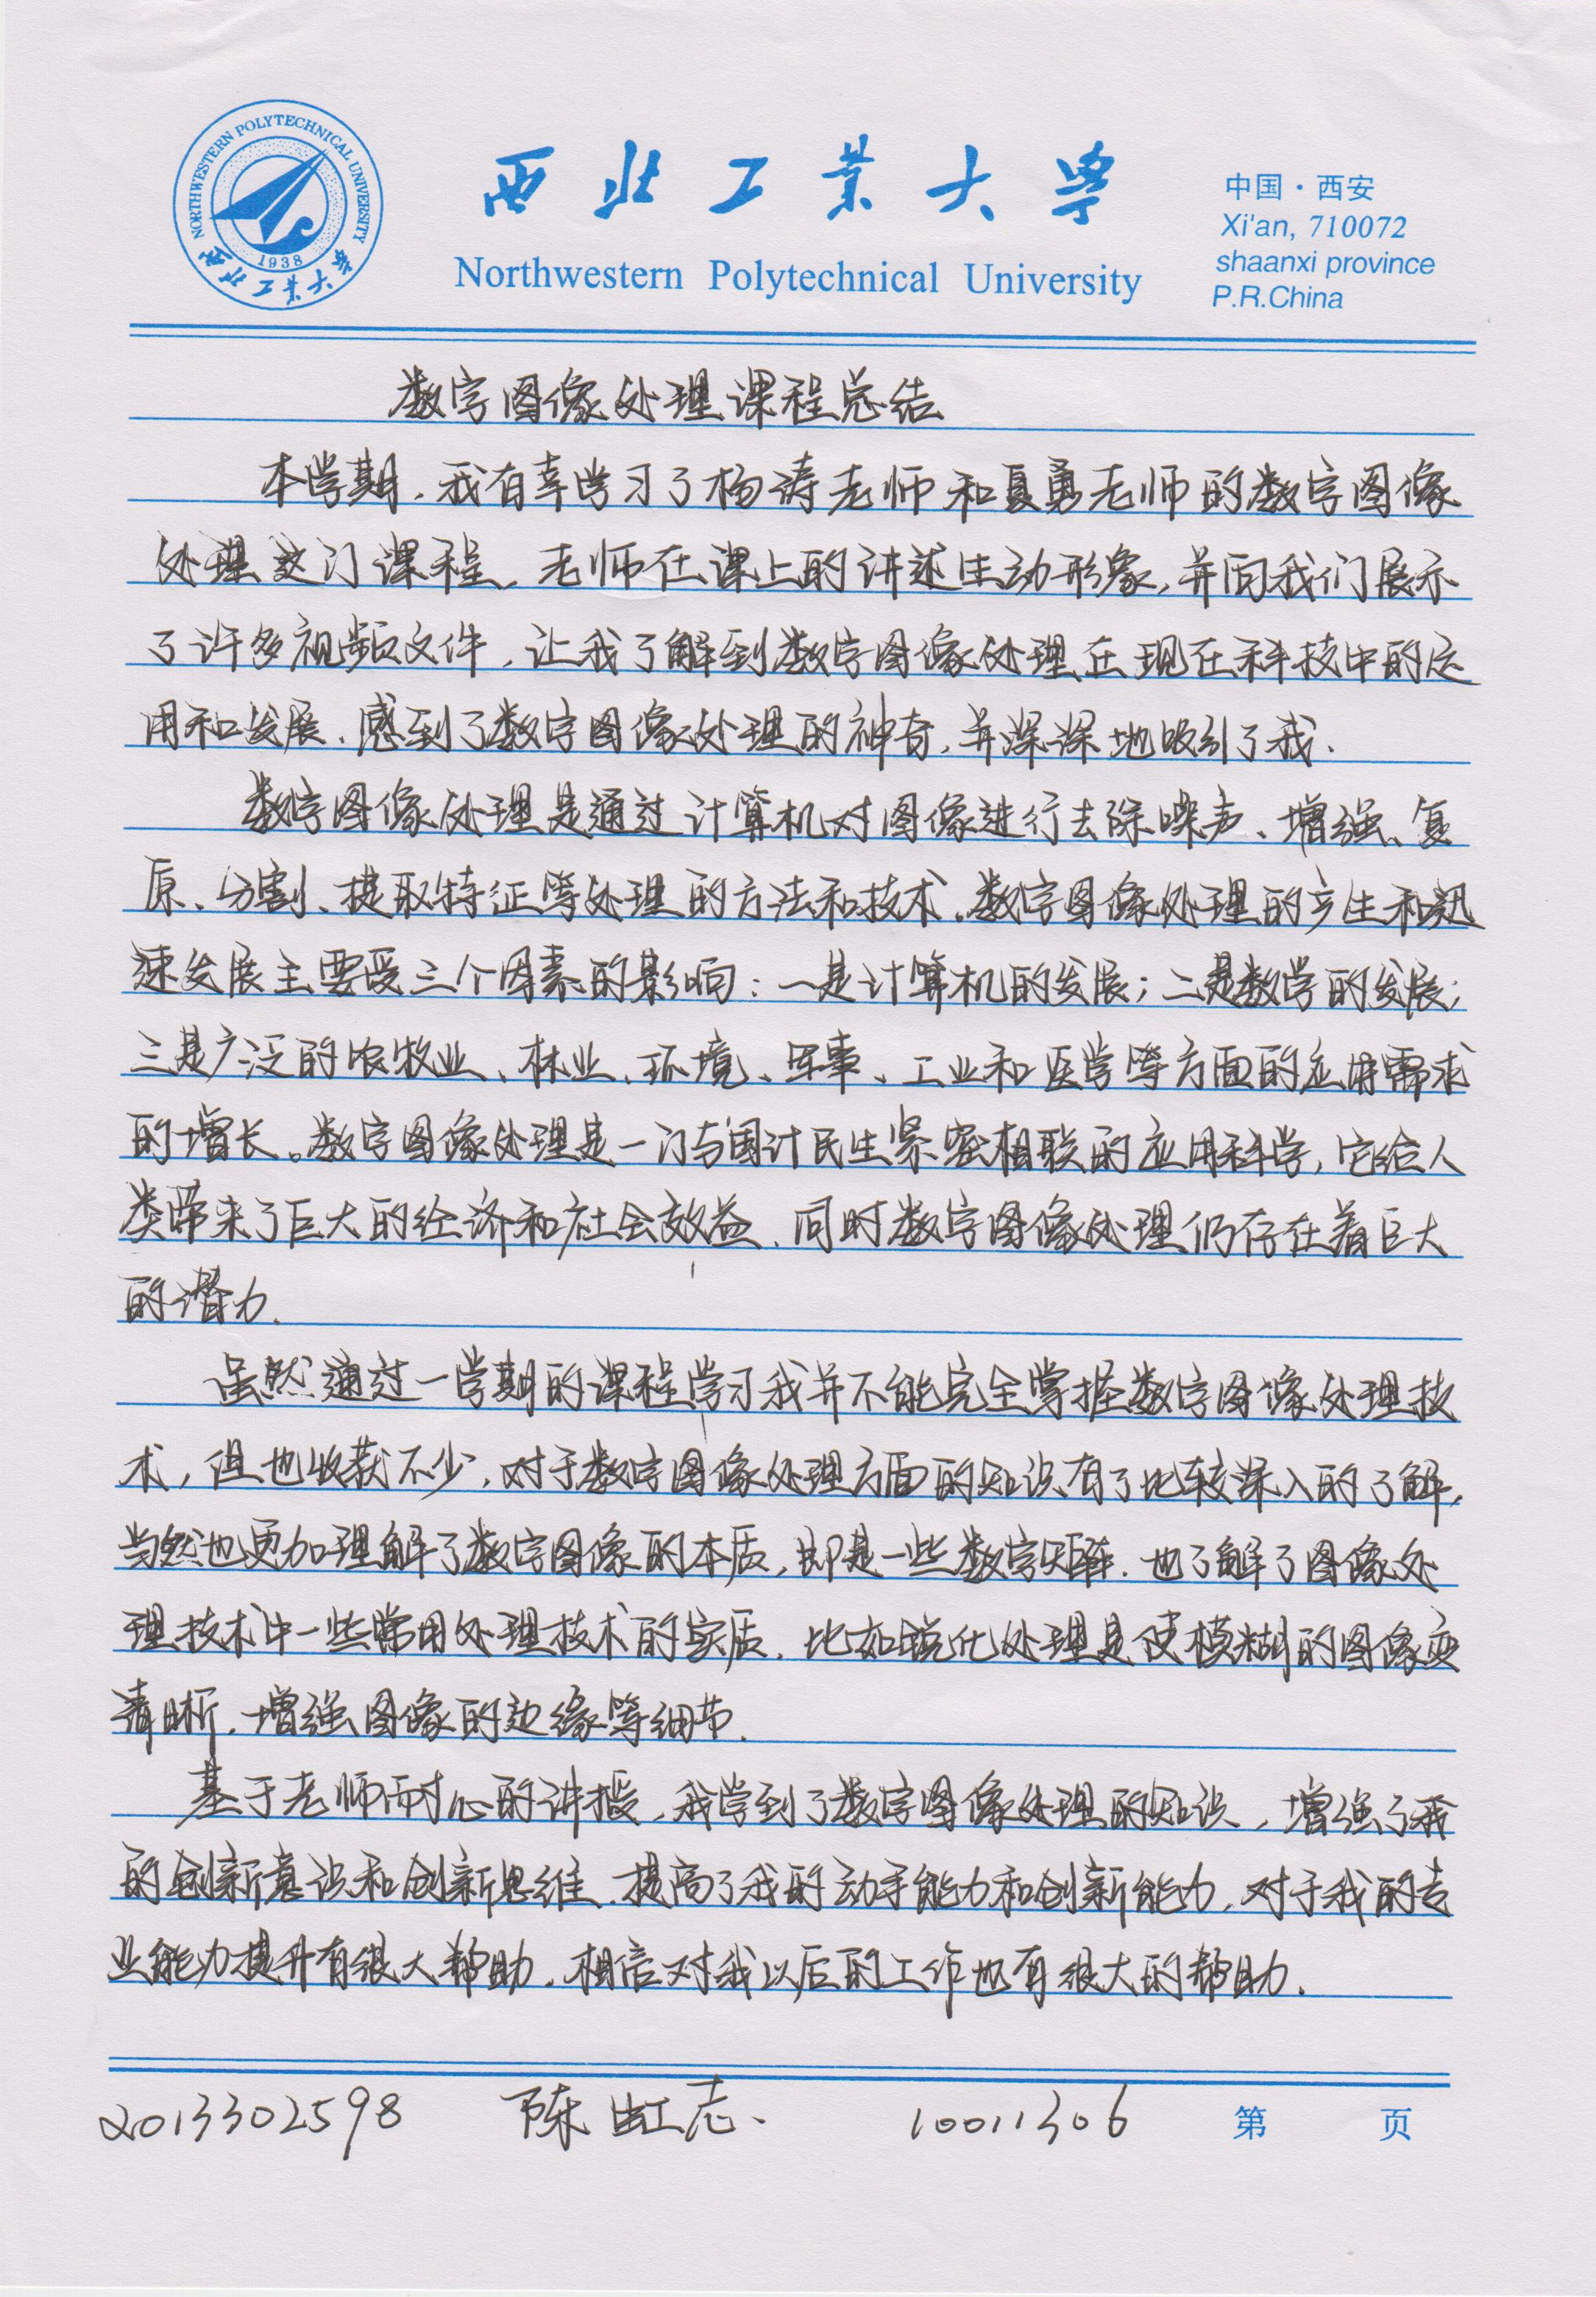 NORTHWESTERN POLYTECHNICAL UNIVERSITY
1938
西北工业大学
西北工业大学
Northwestern Polytechnical University
中国·西安
Xi'an, 710072
shaanxi province
P.R.China
数字图像处理课程总结
本学期,我有幸学习了杨涛老师和夏勇老师的数字图像
处理这门课程,老师在课上的讲述生动形象,并向我们展示
了许多视频文件,让我了解到数字图像处理在现在科技中的运
用和发展,感到了数字图像处理的神奇,并深深地吸引了我.
数字图像处理是通过计算机对图像进行去除噪声、增强、复
原、分割、提取特征等处理的方法和技术。数字图像处理的产生和迅
速发展主要受三个因素的影响:一是计算机的发展;二是数学的发展;
三是广泛的农牧业、林业、环境、军事、工业和医学等方面的应用需求
的增长。数字图像处理是一门与国计民生紧密相联的应用科学,它给人
类带来了巨大的经济和社会效益,同时数字图像处理仍存在着巨大
的潜力.
虽然通过一学期的课程学习我并不能完全掌握数字图像处理技
术,但也收获不少,对于数字图像处理方面的知识有了比较深入的了解,
当然也更加理解了数字图像的本质,即是一些数字矩阵.也了解了图像处
理技术中一些常用处理技术的实质,比如锐化处理是使模糊的图像变
清晰,增强图像的边缘等细节.
基于老师耐心的讲授,我学到了数字图像处理的知识,增强了我
的创新意识和创新思维,提高了我的动手能力和创新能力,对于我的专
业能力提升有很大帮助,相信对我以后的工作也有很大的帮助.
2013302598 陈虹志. 10011306 第 页